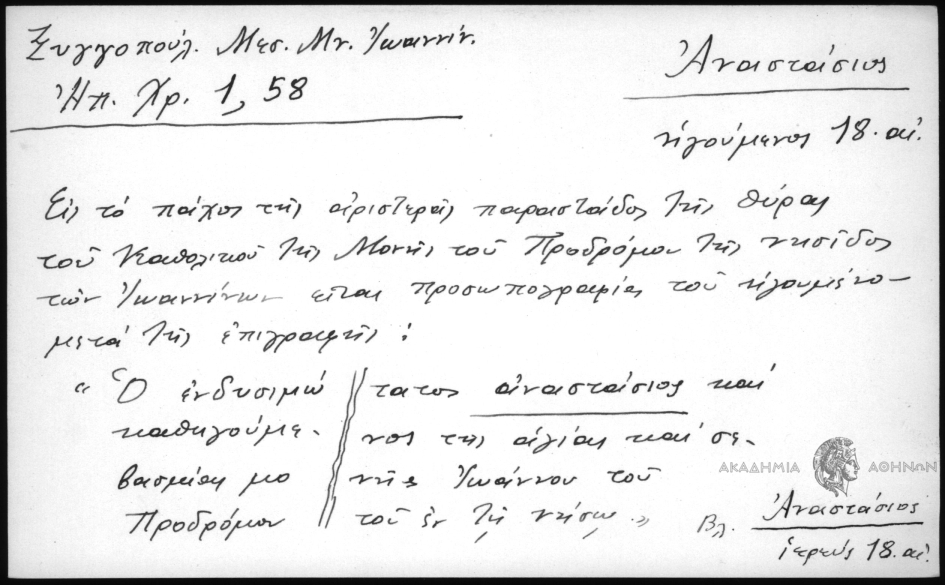 Ξυγγοπούλ. Μεσ. Μν. Ἰωαννίν.
Ἠπ. Χρ. 1, 58
Ἀναστάσιος
ἡγούμενος 18. αἰ.
Εἰς τὸ πάχος τῆς ἀριστερᾶς παραστάδος τῆς θύρας
τοῦ Καθολικοῦ τῆς Μονῆς τοῦ Προδρόμου τῆς νησῖδος
τῶν Ἰωαννίνων εἶναι προσωπογραφία τοῦ ἡγουμένο-
μετὰ τῆς ἐπιγραφῆς :
“ Ὁ ἐνδυσιμώ // τατος ἀναστάσιος καὶ
καθηγούμε- // νος τῆς ἁγίας καὶ σε-
βασμίας μο // νῆς Ἰωάννου τοῦ
Προδρόμου // τοῦ ἐν τῇ νήσῳ „
ΑΚΑΔΗΜΙΑ ΑΘΗΝΩΝ
Βλ. Ἀναστάσιος
ἱερεύς 18. αἰ.